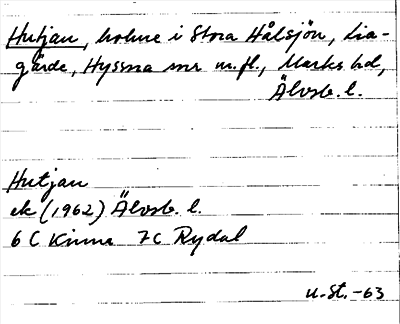 Hutjan, holme i Stora Hålsjön, Lia-
gärde, Hyssna snr m.fl., Marks hd,
Älvsb. l.
Hutjan
ek (1962) Älvsb. l.
6 C Kinna 7C Rydal
u.St.-63